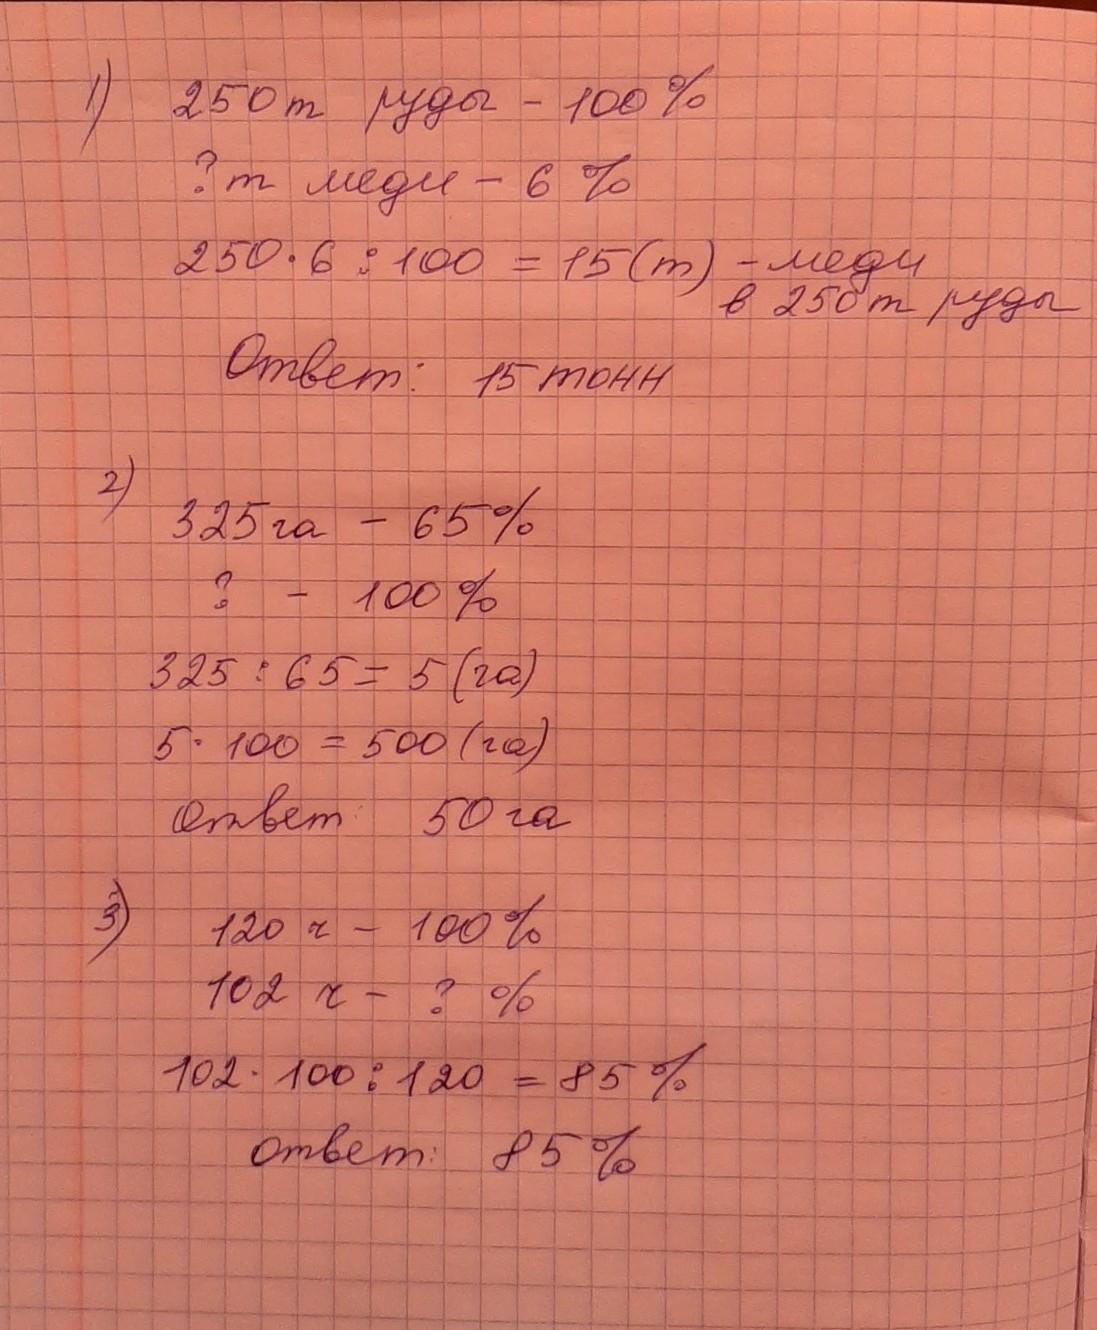 1) 250т руды - 100%
?т меди - 6 %
250·6 : 100 = 15(т) - меди
в 250т руды
Ответ: 15 тонн
2)
325га - 65%
? - 100%
325 : 65 = 5 (га)
5 · 100 = 500 (га)
Ответ: 50 га
3)
120 ч - 100%
102 ч - ? %
102 · 100 : 120 = 85 %
Ответ: 85 %